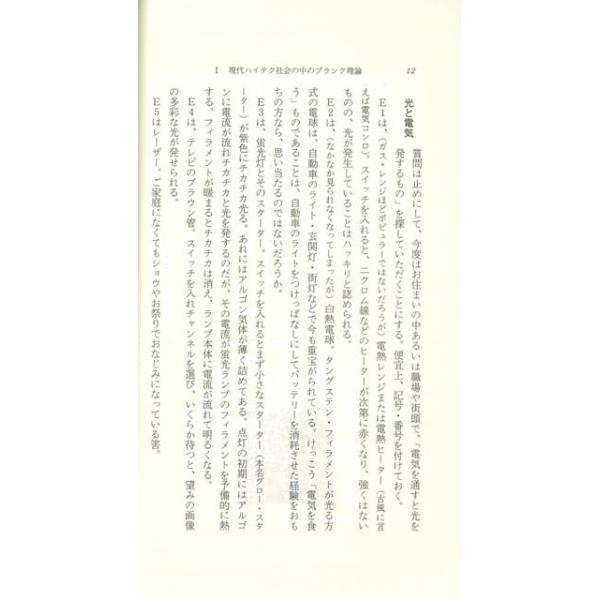 I　現代ハイテク社会の中のプランク理論
12
光と電気
質問は止めにして、今度はお住まいの中あるいは職場や街頭で、「電気を通すと光を
発するもの」を探していただくことにする。便宜上、記号・番号を付けておく。
E1は、(ガス・レンジほどポピュラーではないだろうが)電熱レンジまたは電熱ヒーター(古風に言
えば電気コンロ)。スイッチを入れると、ニクロム線などのヒーターが次第に赤くなり、強くはない
ものの、光が発生していることはハッキリと認められる。
E2は、(なかなか見られなくなってしまったが)白熱電球。タングステン・フィラメントが光る方
式の電球は、自動車のライト・玄関灯・街灯などで今も重宝がられている。けっこう「電気を食
う」ものであることは、自動車のライトをつけっぱなしにしてバッテリーを消耗させた経験をおも
ちの方なら、思い当たるのではないだろうか。
E3は、蛍光灯とそのスターター。スイッチを入れるとまず小さなスターター(本名グロー・スタ
ーター)が紫色にチカチカ光る。あれにはアルゴン気体が薄く詰めてある。点灯の初期にはアルゴ
ンに電流が流れチカチカと光を発するのだが、その電流が蛍光ランプのフィラメントを予備的に熱
する。フィラメントが暖まるとチカチカは消え、ランプ本体に電流が流れて明るくなる。
E4は、テレビのブラウン管。スイッチを入れチャンネルを選び、いくらか待つと、望みの画像
の多彩な光が発せられる。
E5はレーザー。ご家庭になくてもショウやお祭りでおなじみになっている筈。